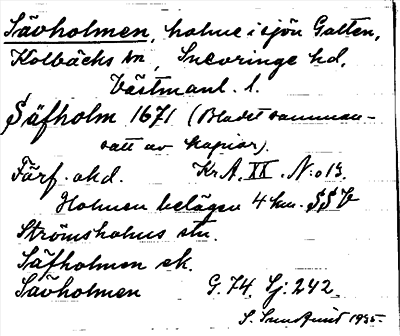 Sävholmen, holme i sjön Galten,
Kolbäcks sn, Snevringe hd,
Västmanl. l.
Säfholm 1671 (Bladet samman-
satt av kopior).
Färf. okd. Kr.A. XX. N:o 13.
Holmen belägen 4 km. SSV
Strömsholms stn.
Säfholmen ek.
Sävholmen G. 74. Sj. 242.
S. 1935.